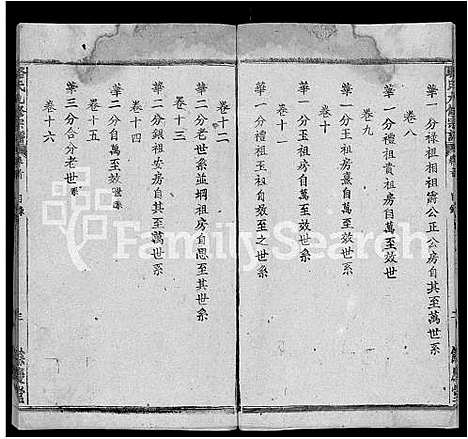 華一分祿祖相祖齋公正公房自其至萬世系
卷八
華一分禮祖貴祖房自萬至效世
卷九
華一分玉祖房熹自萬至效世系
卷十
華一分玉祖房自效至之世系
卷十一
卷十二
華二分老世系並綱祖房自思至其世系
卷十三
華二分銀祖安房自其至萬世系
卷十四
華二分自萬至效世系
卷十五
華三分合分老世系
卷十六
目錄
FamilySearch